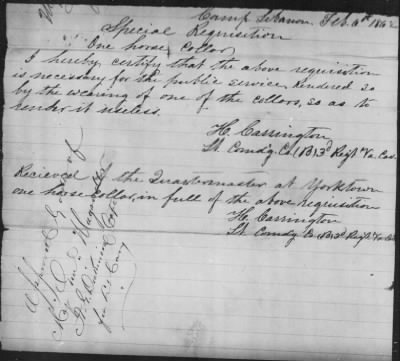 Camp Lebanon, Feb. 6th 1862
Special Requisition
One horse Collar
I hereby certify that the above requisition
is necessary for the public service, rendered so
by the wearing of one of the collars, so as to
render it useless.
H. Carrington
Lt. Comdg. Co. B 3d Regt Va. Cav.
Recieved of the Quartermaster at Yorktown
one horse collar, in full of the above requisition
H. Carrington
Lt Comdy Co. B 3d Regt Va Cav
Approved